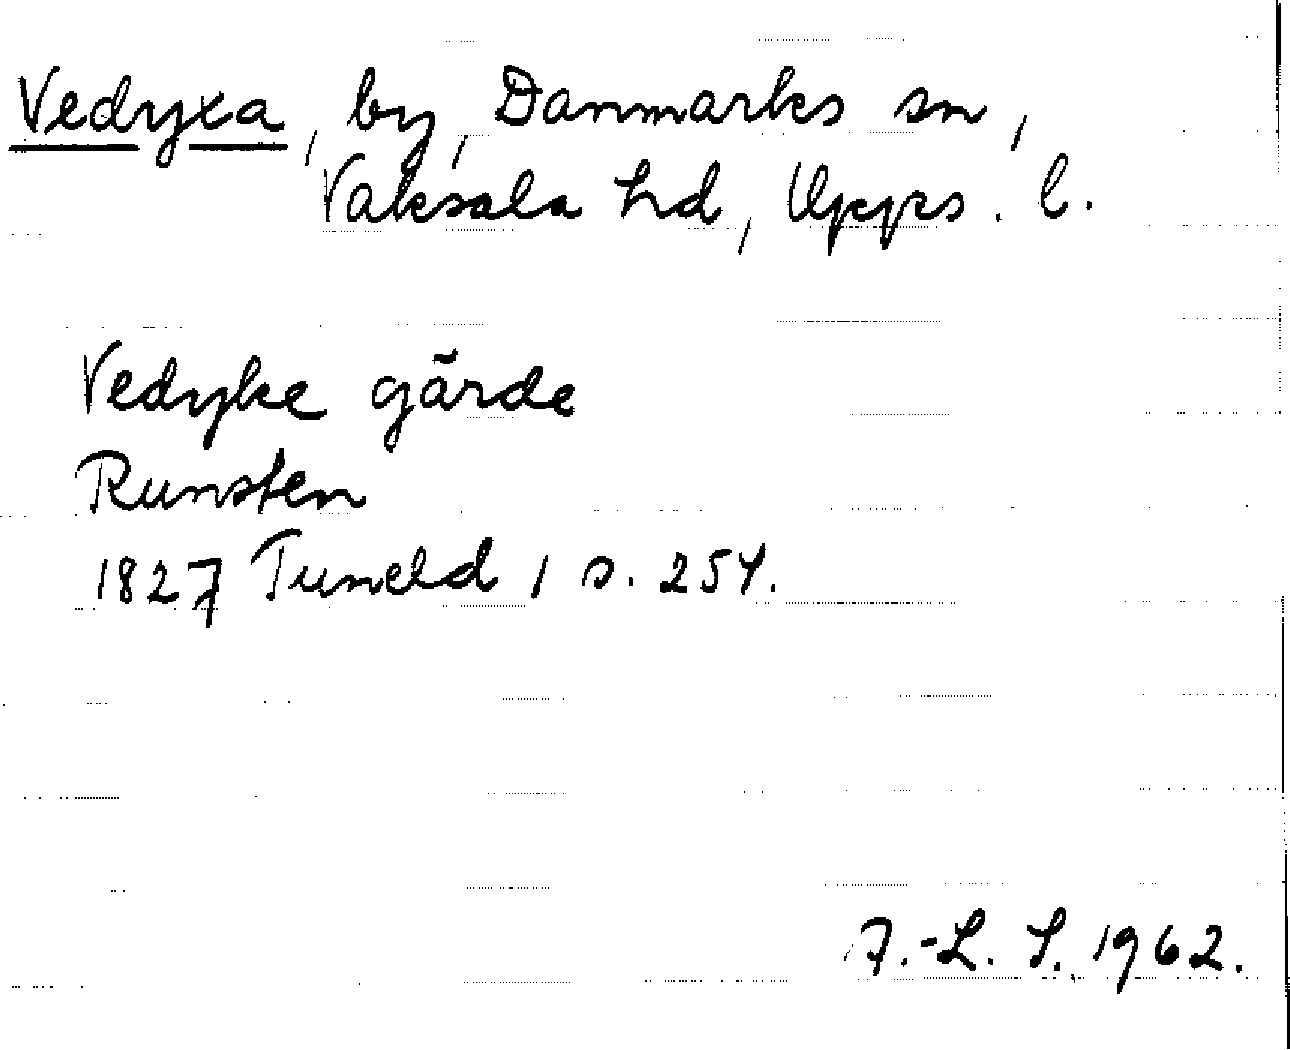 Vedyxa, by, Danmarks sn,
Vaksala hd, Upps. l.
Vedyke gärde
Runsten
1827 Tuneld 1 s. 254.
A.-L. S. 1962.